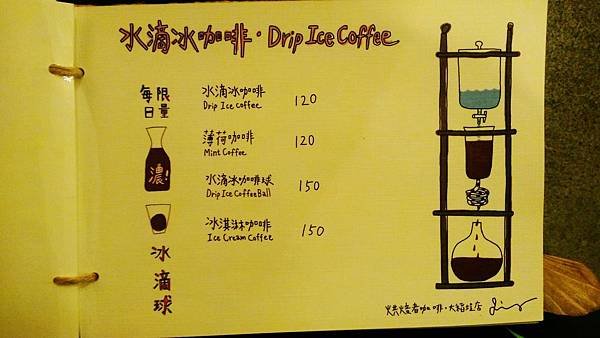 水滴冰咖啡·Drip Ice Coffee
每日限量
水滴冰咖啡 120
Drip Ice Coffee
薄荷咖啡 120
Mint Coffee
濃!
水滴冰咖啡球 150
Drip Ice Coffee Ball
冰淇淋咖啡 150
Ice Cream Coffee
冰滴球
烘焙者咖啡·大稻埕店